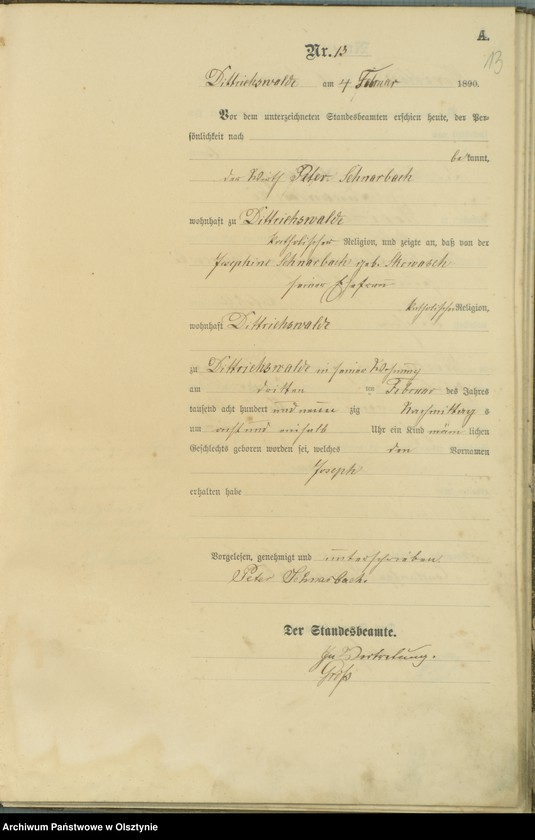 A.
13
Nr. 13
Dittrichswalde am 4 Februar 1890.
Vor dem unterzeichneten Standesbeamten erschien heute, der Per-
sönlichkeit nach
bekannt,
der Wirth Peter Schnarbach
wohnhaft zu Dittrichswalde
katholischer Religion, und zeigte an, daß von der
Josephine Schnarbach geb. Skowasch
seiner Ehefrau
katholischer Religion,
wohnhaft Dittrichswalde
zu Dittrichswalde in seiner Wohnung
am dritten Februar des Jahres
tausend acht hundert und neunzig Nachmittags
um acht und einhalb Uhr ein Kind männlichen
Geschlechts geboren worden sei, welches den Vornamen
Joseph
erhalten habe
Vorgelesen, genehmigt und unterschrieben
Peter Schnarbach.
Der Standesbeamte.
In Vertretung.
Archiwum Państwowe w Olsztynie